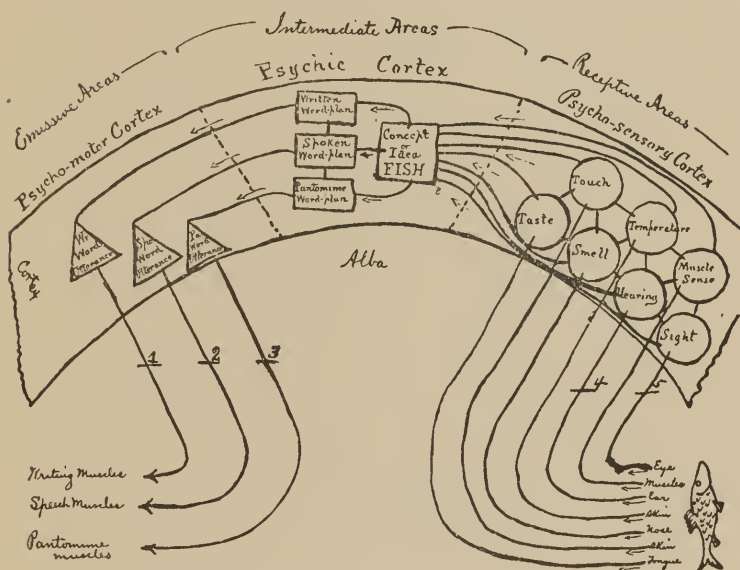 Intermediate Areas
Emissive Areas
Receptive Areas
Psychic Cortex
Psycho-motor Cortex
Psycho-sensory Cortex
Written
Word-plan
Spoken
Word-plan
Pantomime
Word-plan
Concept
or
Idea
FISH
Touch
Taste
Temperature
Smell
Muscle
Sense
Hearing
Sight
Wr
Word
Utterance
Spo
Word
Utterance
Pa
Word
Utterance
Cortex
Alba
1
2
3
4
5
Writing Muscles
Speech Muscles
Pantomime
muscles
Eye
Muscles
Ear
Skin
Nose
Skin
Tongue